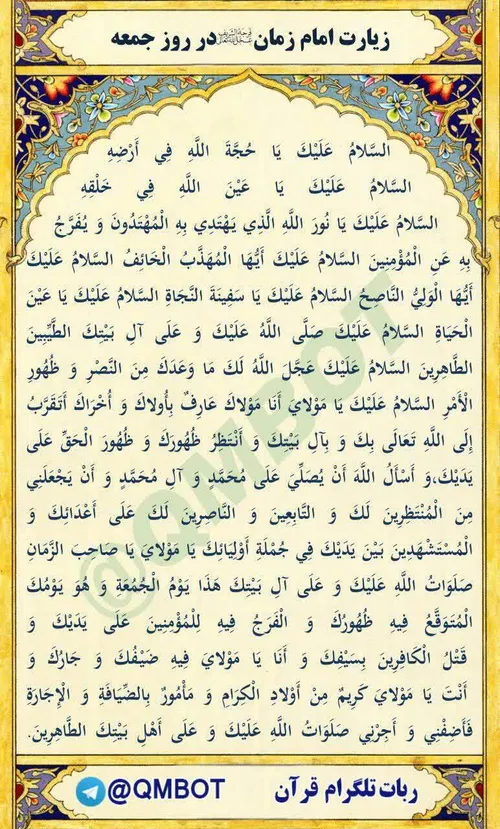 زیارت امام زمان در روز جمعه
السَّلامُ عَلَيْكَ يَا حُجَّةَ اللَّهِ فِي أَرْضِهِ
السَّلامُ عَلَيْكَ يَا عَيْنَ اللَّهِ فِي خَلْقِهِ
السَّلامُ عَلَيْكَ يَا نُورَ اللَّهِ الَّذِي يَهْتَدِي بِهِ الْمُهْتَدُونَ وَ يُفَرَّجُ
بِهِ عَنِ الْمُؤْمِنِينَ السَّلامُ عَلَيْكَ أَيُّهَا الْمُهَذَّبُ الْخَائِفُ السَّلامُ عَلَيْكَ
أَيُّهَا الْوَلِيُّ النَّاصِحُ السَّلامُ عَلَيْكَ يَا سَفِينَةَ النَّجَاةِ السَّلامُ عَلَيْكَ يَا عَيْنَ
الْحَيَاةِ السَّلامُ عَلَيْكَ صَلَّى اللَّهُ عَلَيْكَ وَ عَلَى آلِ بَيْتِكَ الطَّيِّبِينَ
الطَّاهِرِينَ السَّلامُ عَلَيْكَ عَجَّلَ اللَّهُ لَكَ مَا وَعَدَكَ مِنَ النَّصْرِ وَ ظُهُورِ
الْأَمْرِ السَّلامُ عَلَيْكَ يَا مَوْلايَ أَنَا مَوْلاكَ عَارِفٌ بِأُولاكَ وَ أُخْرَاكَ أَتَقَرَّبُ
إِلَى اللَّهِ تَعَالَى بِكَ وَ بِآلِ بَيْتِكَ وَ أَنْتَظِرُ ظُهُورَكَ وَ ظُهُورَ الْحَقِّ عَلَى
يَدَيْكَ،وَ أَسْأَلُ اللَّهَ أَنْ يُصَلِّيَ عَلَى مُحَمَّدٍ وَ آلِ مُحَمَّدٍ وَ أَنْ يَجْعَلَنِي
مِنَ الْمُنْتَظِرِينَ لَكَ وَ التَّابِعِينَ وَ النَّاصِرِينَ لَكَ عَلَى أَعْدَائِكَ وَ
الْمُسْتَشْهَدِينَ بَيْنَ يَدَيْكَ فِي جُمْلَةِ أَوْلِيَائِكَ يَا مَوْلايَ يَا صَاحِبَ الزَّمَانِ
صَلَوَاتُ اللَّهِ عَلَيْكَ وَ عَلَى آلِ بَيْتِكَ هَذَا يَوْمُ الْجُمُعَةِ وَ هُوَ يَوْمُكَ
الْمُتَوَقَّعُ فِيهِ ظُهُورُكَ وَ الْفَرَجُ فِيهِ لِلْمُؤْمِنِينَ عَلَى يَدَيْكَ وَ
قَتْلُ الْكَافِرِينَ بِسَيْفِكَ وَ أَنَا يَا مَوْلايَ فِيهِ ضَيْفُكَ وَ جَارُكَ وَ
أَنْتَ يَا مَوْلايَ كَرِيمٌ مِنْ أَوْلادِ الْكِرَامِ وَ مَأْمُورٌ بِالضِّيَافَةِ وَ الْإِجَارَةِ
فَأَضِفْنِي وَ أَجِرْنِي صَلَوَاتُ اللَّهِ عَلَيْكَ وَ عَلَى أَهْلِ بَيْتِكَ الطَّاهِرِينَ.
@QMBOT
ربات تلگرام قرآن @QMBOT